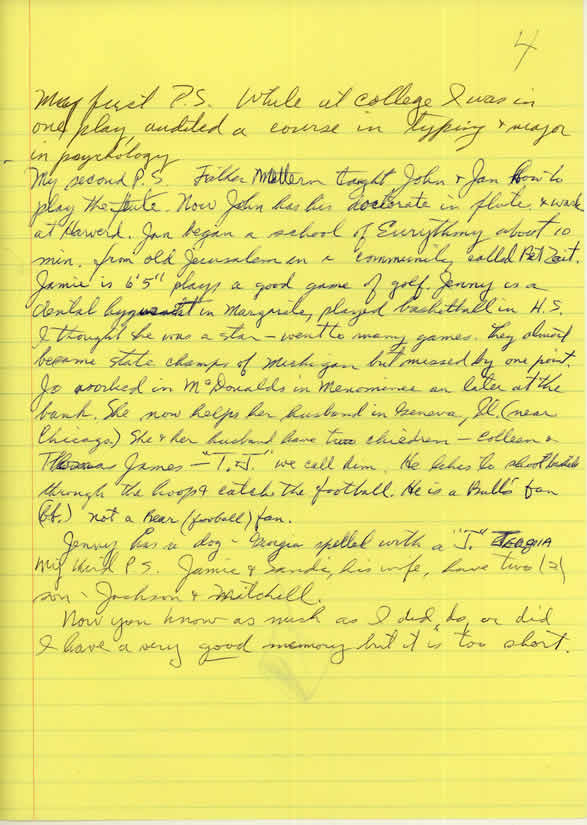 4
My first P.S. While at college I was in
one play, audited a course in typing & major
in psychology
My second P.S. Father Mattern taught John & Jan how to
play the flute. Now John has his doctorate in flute & work
at Harverd. Jan began a school of Eurythmy about 10
min. from old Jerusalem in a community called Bet Zait.
Jamie is 6'5" plays a good game of golf. Jenny is a
dental in played basketball in H.S.
I thought she was a star – went to many games. They almost
became state champs of Michigan but missed by one point.
Jo worked in McDonalds in Menominee an later at the
bank. She now helps her husband in Geneva, Ill. (near
Chicago.) She & her husband have two children – Colleen &
James – "T.J." we call him. He likes to shoot baskets
through the hoop & catch the football. He is a Bull's fan
(bb.) not a Bear (football) fan.
Jenny has a dog – Georgia spelled with a "J."
My third P.S. Jamie & Sandi, his wife, have two (2)
son – Jackson & Mitchell.
Now you know as much as I did, do, or did
I have a very good memory but it is too short.